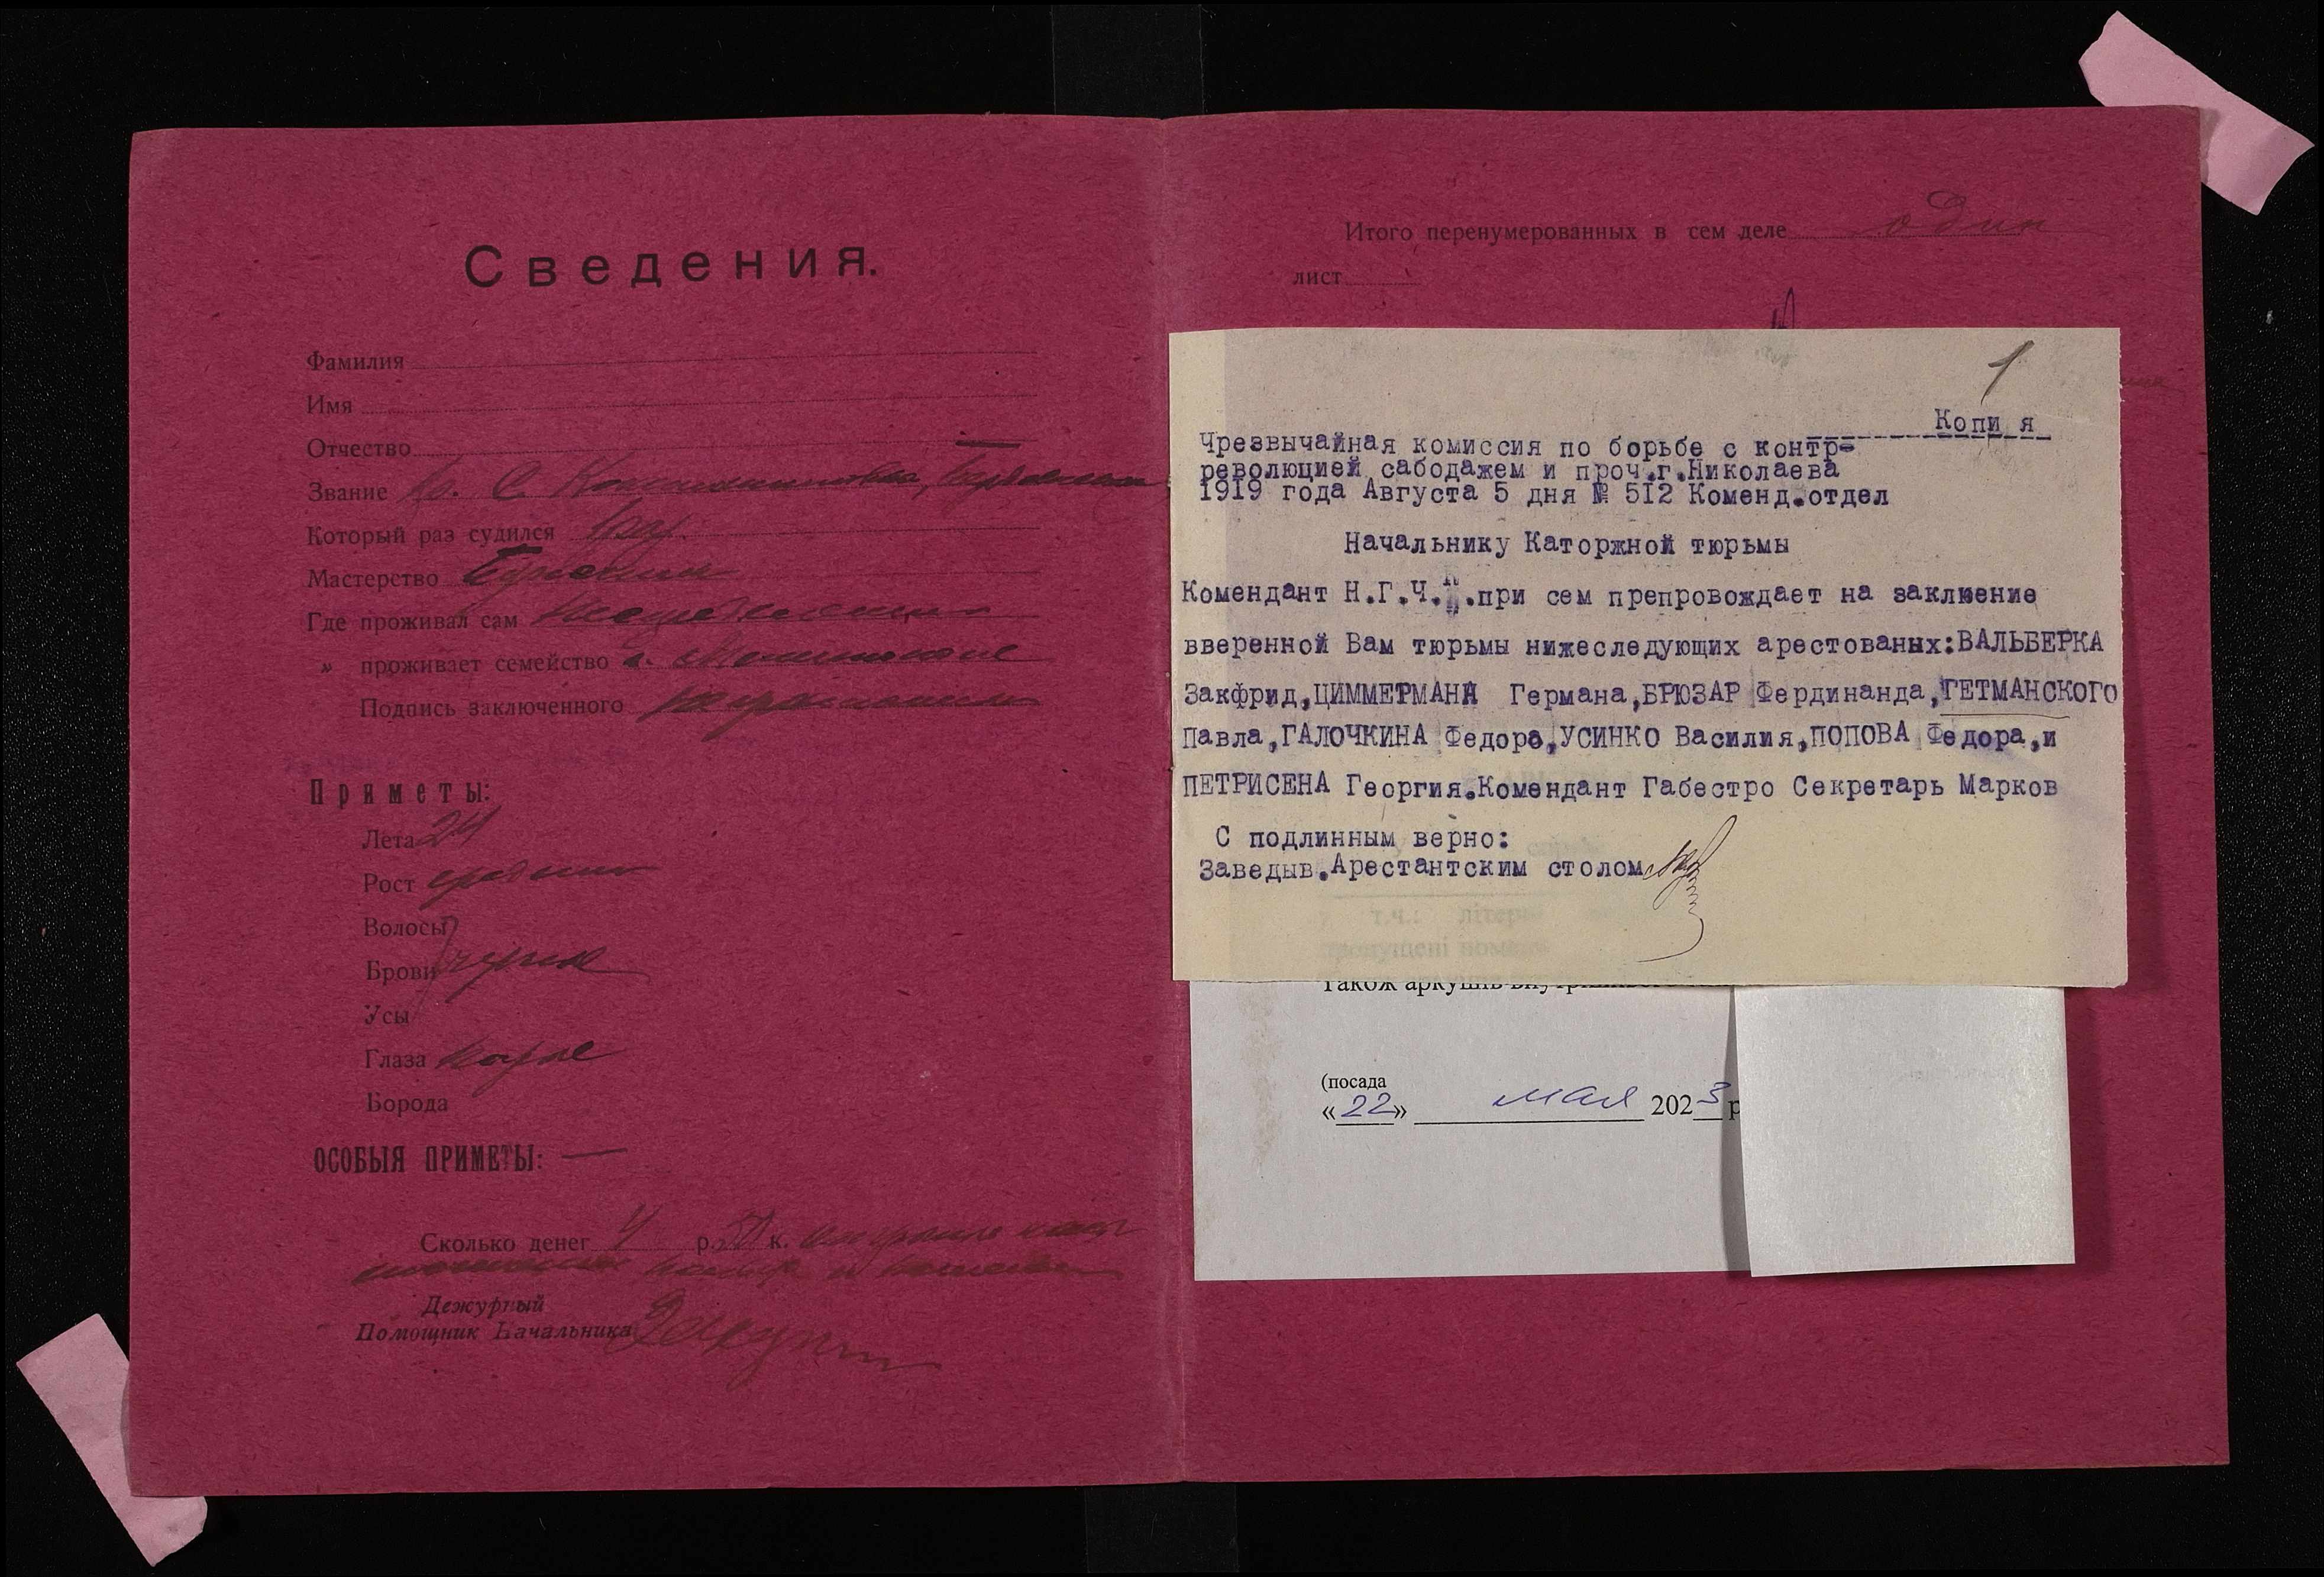 Сведения.
Фамилия
Имя
Отчество —
Звание кр. С. Константиновка,
Который раз судился 1 раз.
Мастерство
Где проживал сам
„ проживает семейство в.
Подпись заключенного неграмотный
Приметы:
Лета 24
Рост средний
Волосы
Брови черные
Усы
Глаза карие
Борода
ОСОБЫЯ ПРИМЕТЫ: —
Сколько денег 4 р. 50 к.
Дежурный
Помощник Начальника
Итого перенумерованных в сем деле один
лист
1
Копия
Чрезвычайная комиссия по борьбе с контр-
революцией сабодажем и проч.г.Николаева
1919 года Августа 5 дня № 512 Коменд.отдел
Начальнику Каторжной тюрьмы
Комендант Н.Г.Ч.К.при сем препровождает на заклюение
вверенной Вам тюрьмы нижеследующих арестованых:ВАЛЬБЕРКА
Закфрид,ЦИММЕРМАНА Германа,БРЮЗАР Фердинанда,ГЕТМАНСКОГО
Павла,ГАЛОЧКИНА Федора,УСИНКО Василия,ПОПОВА Федора,и
ПЕТРИСЕНА Георгия.Комендант Габестро Секретарь Марков
С подлинным верно:
Заведыв.Арестантским столом
т.ч.: літерні
пропущені номери
також аркушів внутрішнього
(посада
«22» мая 2023 р